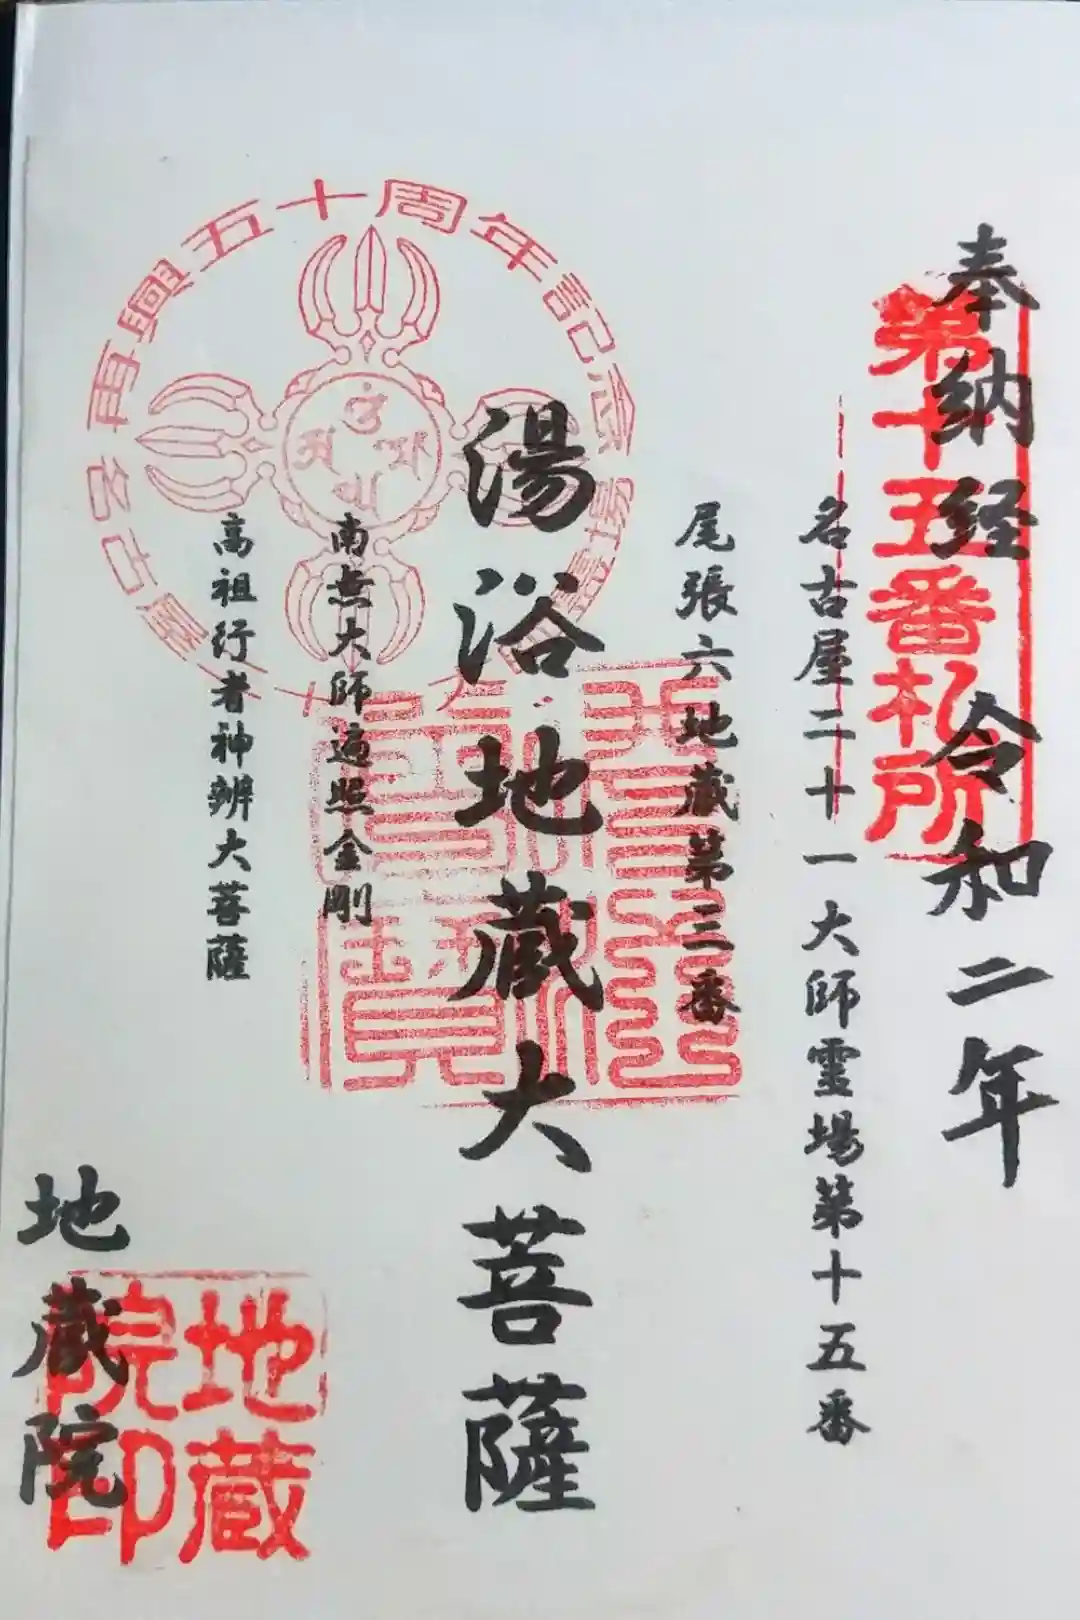 奉納経 令和二年
第十五番札所
名古屋二十一大師霊場第十五番
尾張六地蔵第三番
湯浴地蔵大菩薩
南無大師遍照金剛
高祖行者神辨大菩薩
再興五十周年記念
名古屋二十一大師霊場
佛法僧寳
地蔵院
地蔵院印